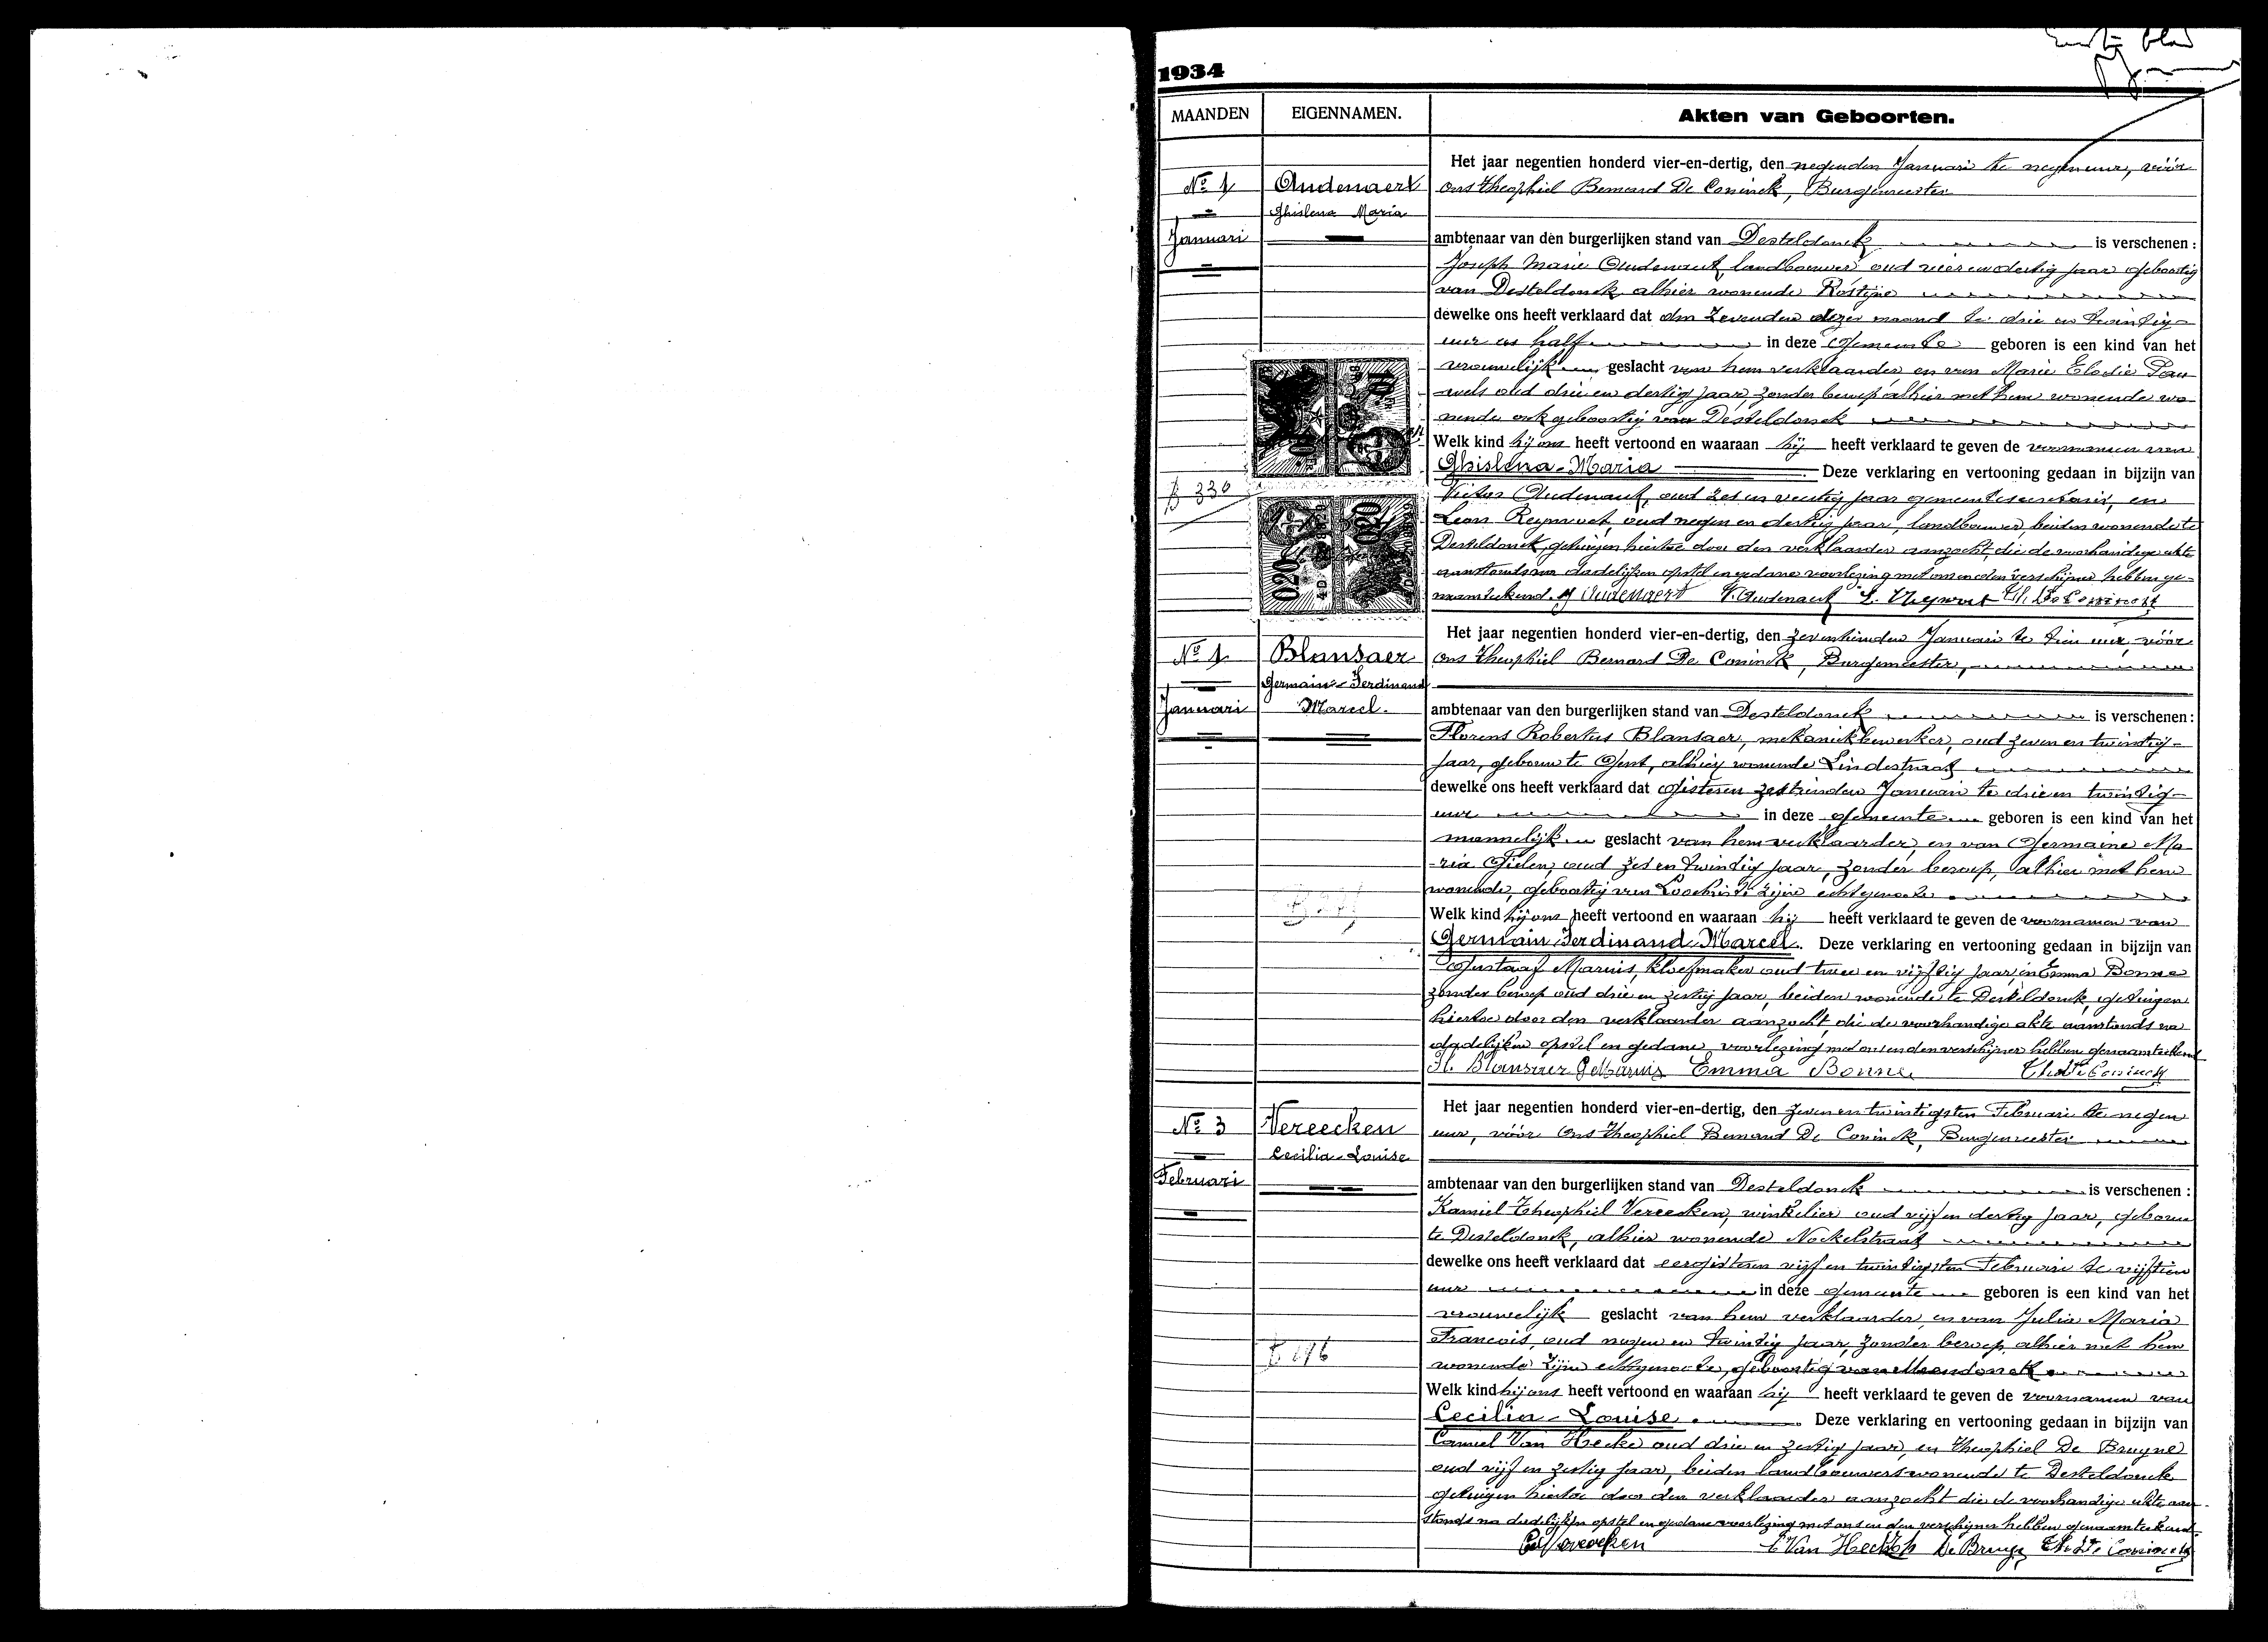 1934
MAANDEN
EIGENNAMEN.
Akten van Geboorten.
Het jaar negentien honderd vier-en-dertig, den negenden Januari te negen uur, vóór
No 1
Oudenaert
ons Theophiel Bernard De Coninck, Burgemeester
Ghislena Maria
Januari
ambtenaar van den burgerlijken stand van Desteldonck is verschenen :
Joseph Marie Oudenaert, landbouwer oud vier en dertig jaar geboortig
van Desteldonck alhier wonende Rostijne
dewelke ons heeft verklaard dat den zevenden dezer maand te drie en twintig
uur en half in deze Gemeente geboren is een kind van het
vrouwelijk geslacht van hem verklaarder en van Marie Elodie Pau-
wels oud drie en dertig jaar, zonder beroep alhier met hem wonende wo-
nende ook geboortig van Desteldonck
Welk kind hij ons heeft vertoond en waaraan hij heeft verklaard te geven de voornamen van
Ghislena-Maria Deze verklaring en vertooning gedaan in bijzijn van
B 330
Victor Oudenaert, oud zes en jaar gemeentesecretaris, en
Leon Reyvoet, oud negen en dertig jaar, landbouwer, beiden wonende te
Desteldonck, getuigen hiertoe door den verklaarder aanzocht, die de voorhandige akte
aanstonds na dadelijken opstel en gedane voorlezing met ons en den verschijner hebben ge-
naamteekend. J Oudenaert V. Oudenaert L. Reyvoet Th. De Coninck
Het jaar negentien honderd vier-en-dertig, den zeventienden Januari te tien uur, vóór
No 1
Blansaer
ons Theophiel Bernard De Coninck, Burgemeester,
Germain-Ferdinand
Januari
Marcel.
ambtenaar van den burgerlijken stand van Desteldonck is verschenen :
Florens Robertus Blansaer, mekaniekbewerker, oud zeven en twintig
jaar, geboren te Gent, alhier wonende Lindestraat
dewelke ons heeft verklaard dat gisteren zestienden Januari te drie en twintig
uur in deze gemeente geboren is een kind van het
mannelijk geslacht van hem verklaarder, en van Germaine Ma-
ria Gielen, oud zes en twintig jaar, zonder beroep, alhier met hem
wonende, geboortig van Loochristi zijne echtgenoote
Welk kind hij ons heeft vertoond en waaraan hij heeft verklaard te geven de voornamen van
Germain Ferdinand Marcel. Deze verklaring en vertooning gedaan in bijzijn van
Gustaaf Marnis, kloefmaker oud twee en vijftig jaar, en Emma Bonne
zonder beroep oud drie en zestig jaar, beiden wonende te Desteldonck, getuigen
hiertoe door den verklaarder aanzocht, die de voorhandige akte aanstonds na
dadelijken opstel en gedane voorlezing met ons en den verschijner hebben genaamteekend
Fl. Blansaer G Marnis Emma Bonne Th De Coninck
Het jaar negentien honderd vier-en-dertig, den zeven en twintigsten Februari te negen
No 3
Vereecken
uur, vóór Ons Theophiel Bernard De Coninck, Burgemeester
Cecilia-Louise
Februari
ambtenaar van den burgerlijken stand van Desteldonck is verschenen :
Kamiel Theophiel Vereecken, winkelier oud vijf en dertig jaar, geboren
te Desteldonck, alhier wonende Nokelstraat
dewelke ons heeft verklaard dat eergisteren vijf en twintigsten Februari te vijftien
uur in deze gemeente geboren is een kind van het
vrouwelijk geslacht van hem verklaarder, en van Julia Maria
Francois, oud negen en twintig jaar, zonder beroep, alhier met hem
wonende zijne echtgenoote, geboortig van Mendonck
Welk kind hij ons heeft vertoond en waaraan hij heeft verklaard te geven de voornamen van
Cecilia-Louise. Deze verklaring en vertooning gedaan in bijzijn van
Camiel Van Hecke oud drie en zestig jaar, en Theophiel De Bruyne
oud vijf en zestig jaar, beiden landbouwers wonende te Desteldonck
getuigen hiertoe door den verklaarder aanzocht die de voorhandige akte aan-
stonds na dadelijken opstel en gedane voorlezing met ons en den verschijner hebben genaamteekend.
Vereecken C Van Hecke De Bruyne Th De Coninck